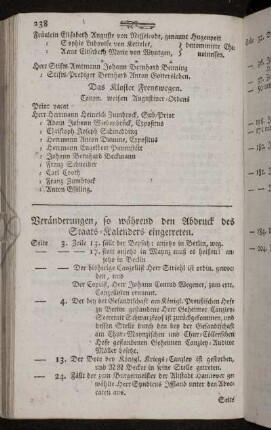 238
Fräulein Elisabeth Auguste von Nesselrode, genannt Hugenpoet
Sophie Ludovise von Ketteler,
Anne Elisabeth Marie von Wyntgen,
Herr Stifts-Amtmann Johann Bernhard Benning
Stifts-Prediger Bernhard Anton
Das Kloster Frenswegen.
Canon. weissen Augustiner-Ordens
Prior vacat.
Herr Herrmann Heinrich Zumbrock, Sub-Prior
Adam Johann Expositus
Christoph Joseph Schmedding
Herrmann Anton Expositus
Herrmann Engelbert
Johann Bernhard Beckmann
Franz Schneider
Carl
Franz Zumbrock
Anton
Veränderungen, so während den Abdruck des
Staats-Kalenders eingetreten.
Seite 3. Zeile 13. fällt der Beysatz: anjetzo in Berlin, weg.
— — 17. statt anjetzo in Maynz muß es heißen: an-
jetzo in Berlin
— — Der bisherige Canzellist Herr Striehl ist ordin. gewor-
den, und
Der Copiist, Herr Johann Conrad Wegener, zum ext.
Canzellisten ernannt.
— 4. Der bey der Gesandtschaft am Königl. Preußischen Hofe
zu Berlin gestandene Herr Geheimer Canzley-
Secretair Schwarzkopf ist zurückgekommen, und
dessen Stelle durch den bey der Gesandtschaft
am Chur-Maynzischen und Chur-Cöllnischen
Hofe gestandenen Herrn Geheimen Canzley-Auditor
Möller besetzt.
— 13. Der Bote bey Königl. Kriegs-Canzley ist gestorben,
und NN Becker in seine Stelle getreten.
— 24. Fällt der zum Burgermeister der Altstadt Hannover er-
wählte Herr Syndicus Iffland unter den Advo-
caten aus.
Seite